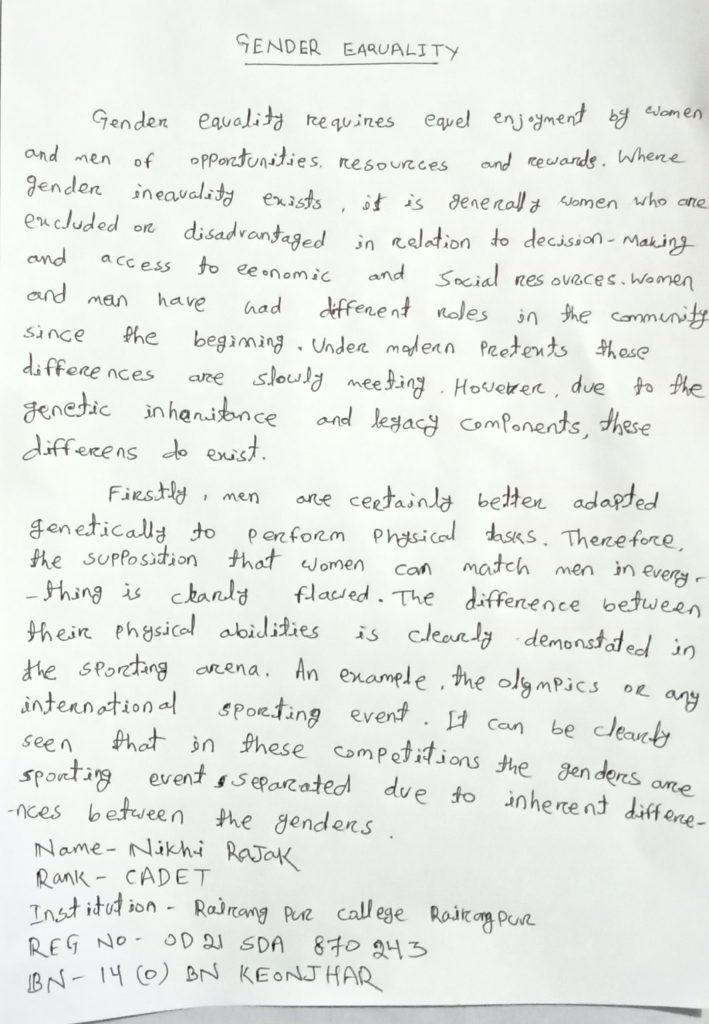 GENDER EARUALITY
Gender equality requires equel enjoyment by women
and men of opportunities. resources and rewards. Where
gender ineavality exists, it is generally women who are
excluded or disadvantaged in relation to decision-making
and access to eeonomic and social resources. Women
and men have had different roles in the community
since the begining. Under modern Pretexts these
differences are slowly meeting. However, due to the
genetic inheritance and legacy components, these
differens do exist.
Firstly, men are certainly better adapted
genetically to perform physical tasks. Therefore,
the supposition that women can match men in every-
-thing is clearly flawed. The difference between
their physical abidities is clearly demonstated in
the sporting arena. An example, the olympics or any
international sporting event. It can be clearly
seen that in these competitions the genders are
sporting event separated due to inherent differe-
-nces between the genders.
Name- Nikhi Rajak
Rank - CADET
Institution - Rairang pur college Rairangpur
REG NO- OD 21 SDA 870 243
BN- 14 (O) BN KEONJHAR